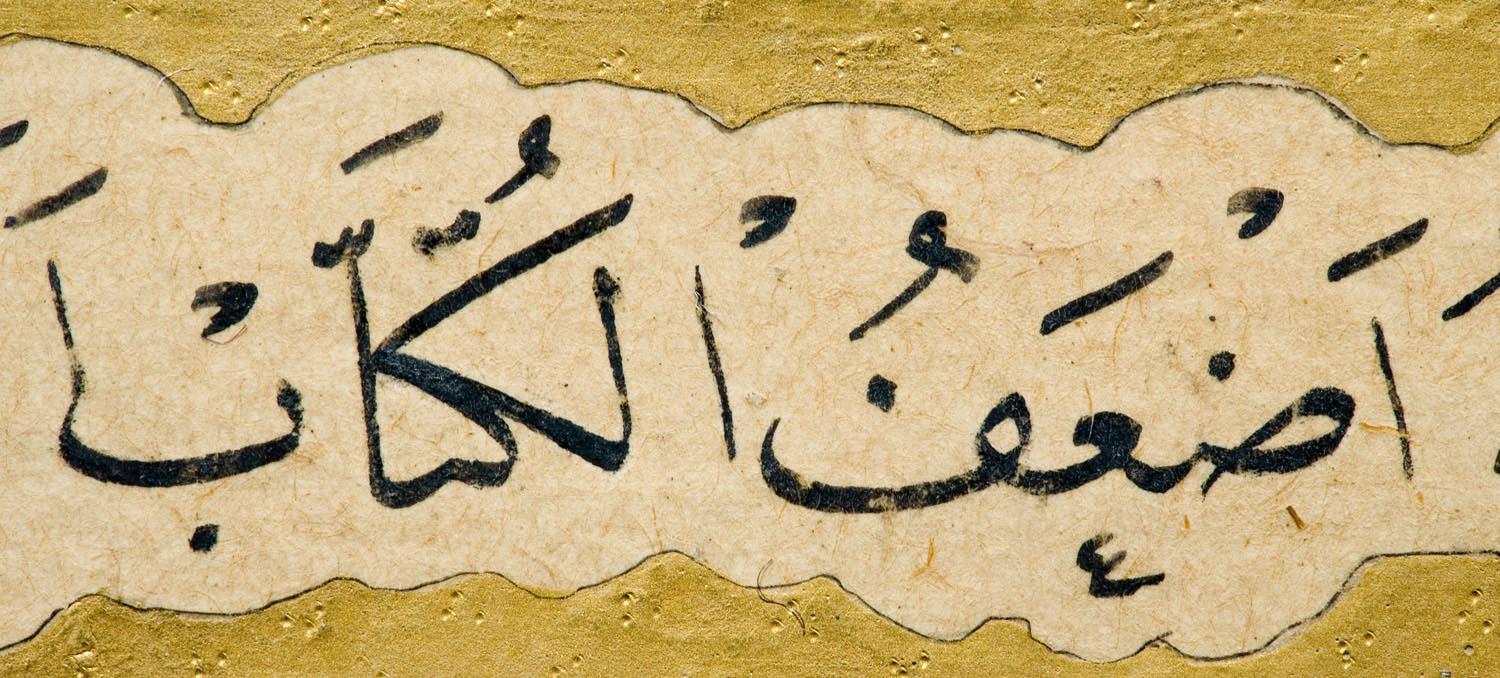 اَضْعَفُ الْكُتَّابْ